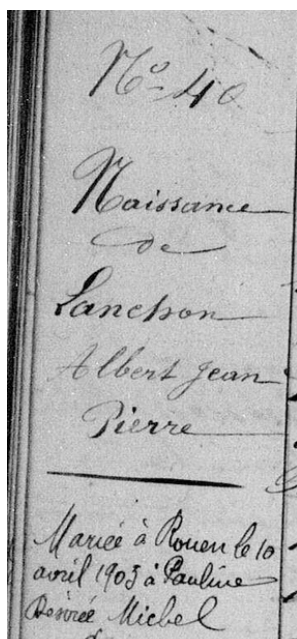 No 40
Naissance
de
Lanchon
Albert Jean
Pierre
Mariée à Rouen le 10
avril 1903 à Pauline
Désirée Michel